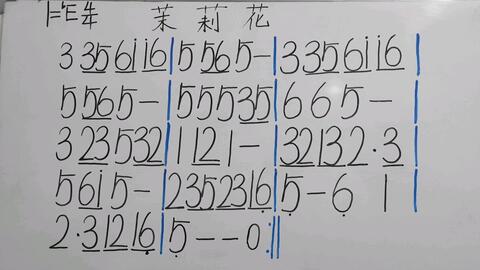 1=♭E 4/4 茉莉花
3 35 61̇ 1̇6 | 5 56 5 - | 3 35 61̇ 1̇6 |
5 56 5 - | 5 5 5 35 | 6 6 5 - |
3 23 5 32 | 1 12 1 - | 32 13 2· 3 |
5 61̇ 5 - | 23 52 31 6̣ | 5̣ - 6̣ 1 |
2· 3 12 16̣ | 5̣ - - 0 :||